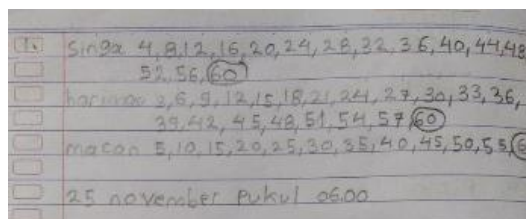 1. Singa 4,8,12,16,20,24,28,32,36,40,44,48
52,56,60
harimau 3,6,9,12,15,18,21,24,27,30,33,36,
39,42,45,48,51,54,57,60
macan 5,10,15,20,25,30,35,40,45,50,55,6
25 november pukul 06.00